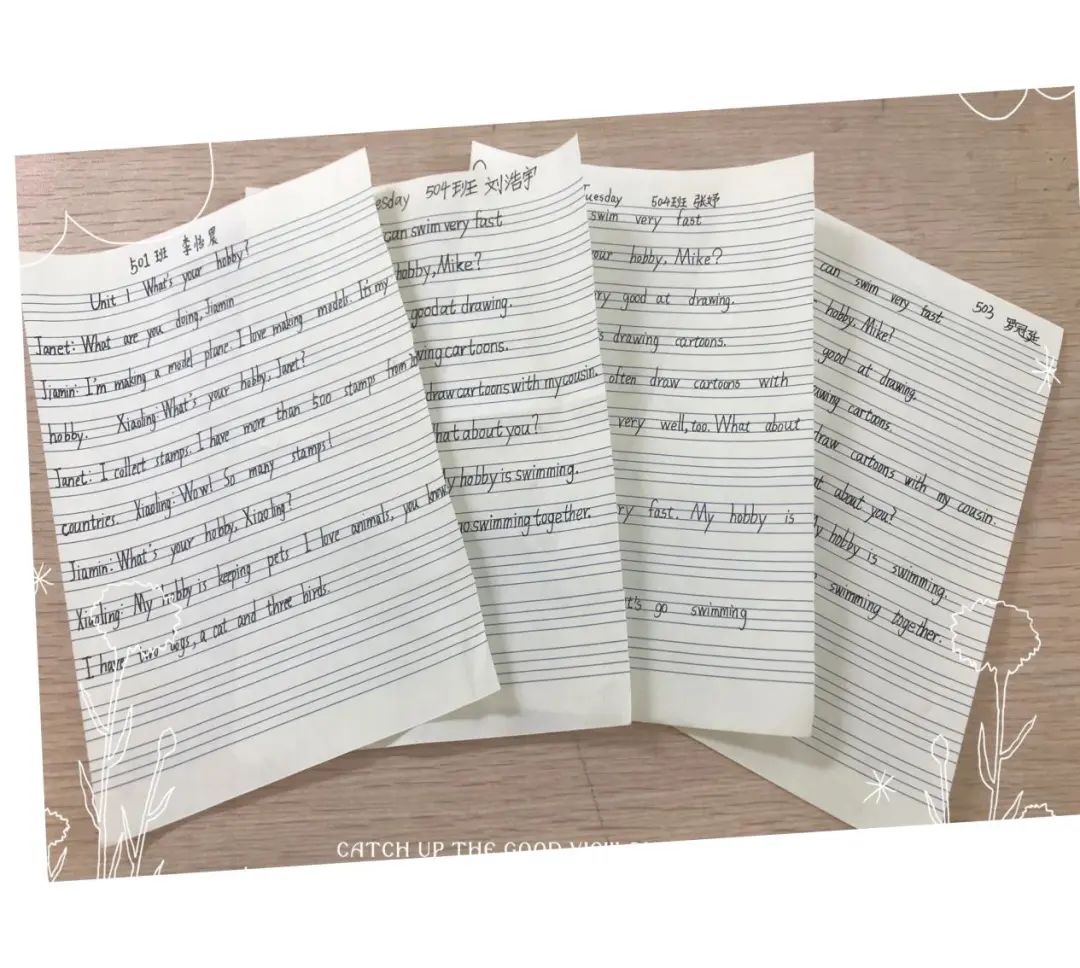 501班 李怡晨
Unit 1 What's your hobby?
Janet: What are you doing, Jiamin
Jiamin: I'm making a model plane. I love making models. It's my
hobby. Xiaoling: What's your hobby, Janet?
Janet: I collect stamps. I have more than 500 stamps from
countries. Xiaoling: Wow! So many stamps!
Jiamin: What's your hobby, Xiaoling?
Xiaoling: My hobby is keeping pets I love animals, you know
I have two dogs, a cat and three birds.
esday 504班 刘浩宇
can swim very fast
hobby, Mike?
good at drawing.
wing cartoons.
draw cartoons with my cousin.
hat about you?
y hobby is swimming.
go swimming together.
uesday 504班 张妤
swim very fast
our hobby, Mike?
ry good at drawing.
s drawing cartoons.
often draw cartoons with
very well, too. What about
ry fast. My hobby is
t's go swimming
503 罗冠
can swim very fast
hobby, Mike!
good at drawing.
awing cartoons.
draw cartoons with my cousin.
at about you?
My hobby is swimming.
swimming together.
CATCH UP THE GOOD VIEW